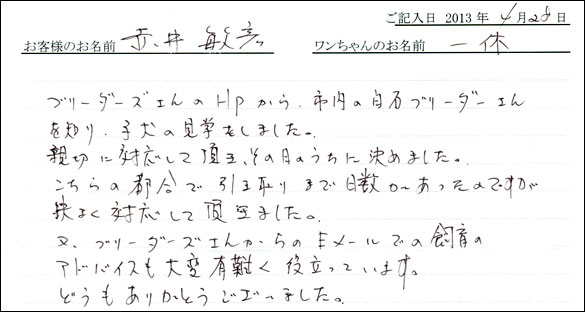 ご記入日 2013 年 4 月 28 日
お客様のお名前 赤井 敏彦 ワンちゃんのお名前 一休
ブリーダーズさんのHPから、市内の白石ブリーダーさん
を知り、子犬の見学をしました。
親切に対応して頂き、その日のうちに決めました。
こちらの都合で引き取りまで日数があったのですが
快よく対応して頂きました。
又、ブリーダーズさんからのEメールでの飼育の
アドバイスも大変有難く役立っています。
どうもありがとうございました。